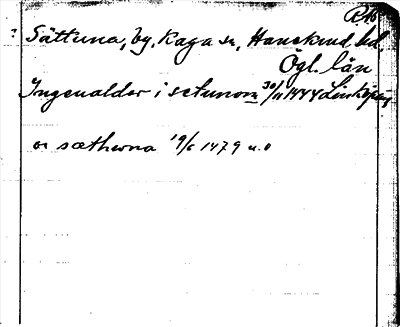 RAb
? Sättuna, by, Kaga sn, Hanekind hd
Ögl. län
Ingeualder i setunom 30/11 1444 Linköping
or sætherna 19/6 1479 u.o